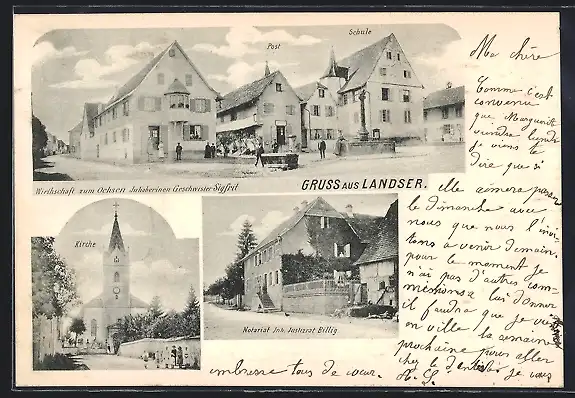 Post
Schule
Wirthschaft zum Ochsen Inhaberinen Geschwister Sigfrit
GRUSS AUS LANDSER.
Kirche
Notariat Inh. Justizrat Billig
Ma chère
Comme c'est
convenu
que Marguerite
viendra lundi
je viens te
dire que si
elle aimera passer
le dimanche avec
nous que nous l'invi-
tons à venir demain.
pour le moment je
n'ai pas d'autres com-
missions à lui donner
il faudra que je vien
en ville la semaine
prochaine pour aller
chez le dentiste je vous
embrasse tous de cœur.